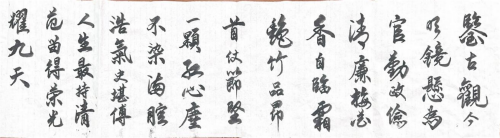 鑒古觀今
明鏡懸為
官勤政儉
清廉梅花
香自臨霜
艷竹品昂
首仗節堅
一顆紅心塵
不染滿腔
浩氣史堪傳
人生最持清
范留得榮光
耀九天